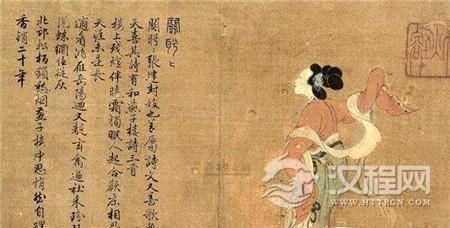 關盼〻
關盼〻張建封妓也善屬詩文又喜歌
天喜其詩有和燕子樓詩三首
樓上殘燈伴曉霜獨眠人起合歡床相
天涯未是長
適看鴻雁岳陽迴又覩玄禽逼社來瑤瑟
蛛網任從灰
北邙松柏鎖愁烟燕子樓中思悄然自埋
香銷二十年
汉程网
HTTPCN.COM